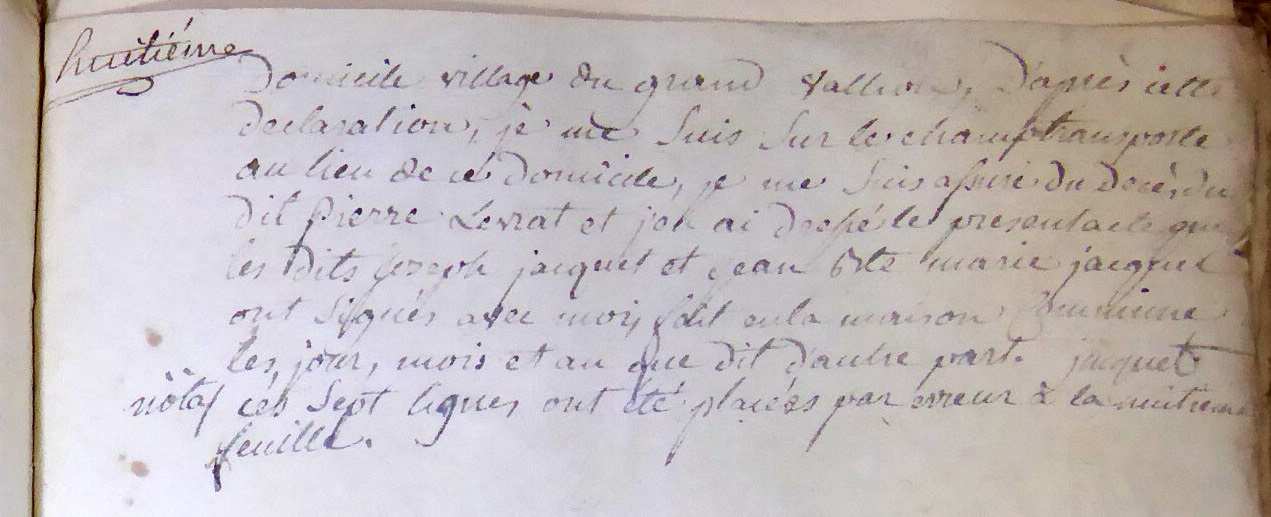 huitiéme
domicile village du grand Vallion, D'après cette
declaration, je me suis sur le champ transporté
au lieu de cé domicile, je me suis assuré du decé, du
dit pierre Levrat et j'en ai dressé le present acte que
les dits joseph jacquet et jean Bte marie jacquet
ont signés avec moi, fait en la maison Commune
les, jour, mois et an que dit d'autre part. jacquet
nôta ces sept lignes ont été placées par erreur à la huitieme
feuille.